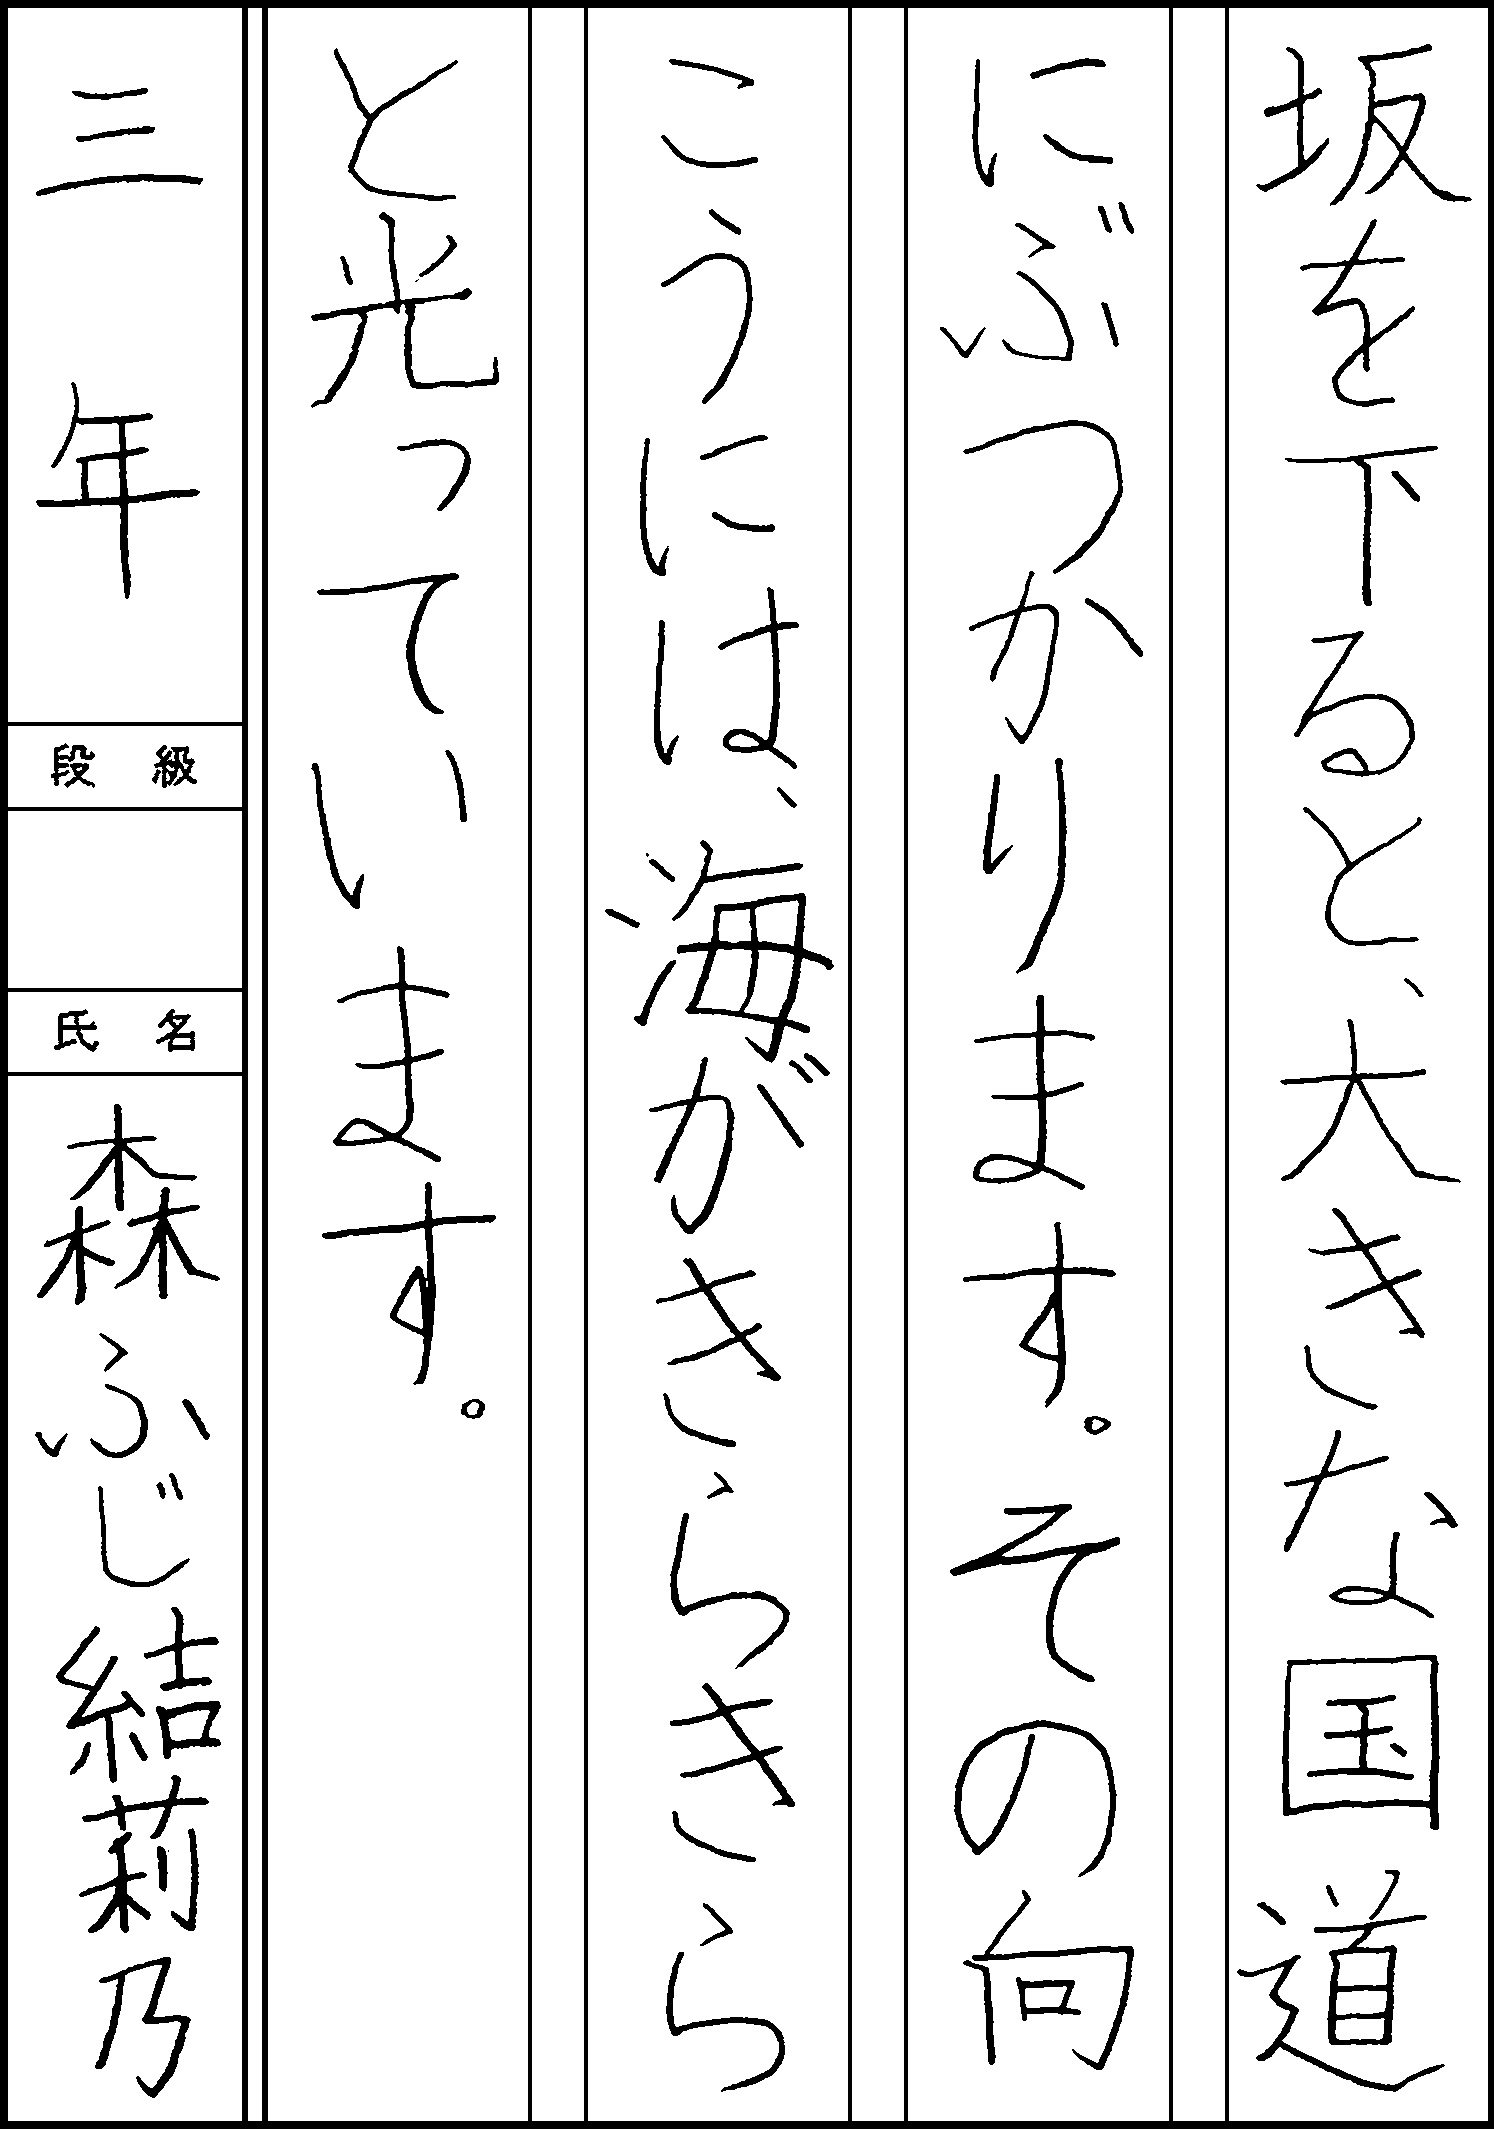 坂を下ると、大きな国道
にぶつかります。その向
こうには、海がきらきら
と光っています。
三年
段級
氏名
森ふじ結莉乃